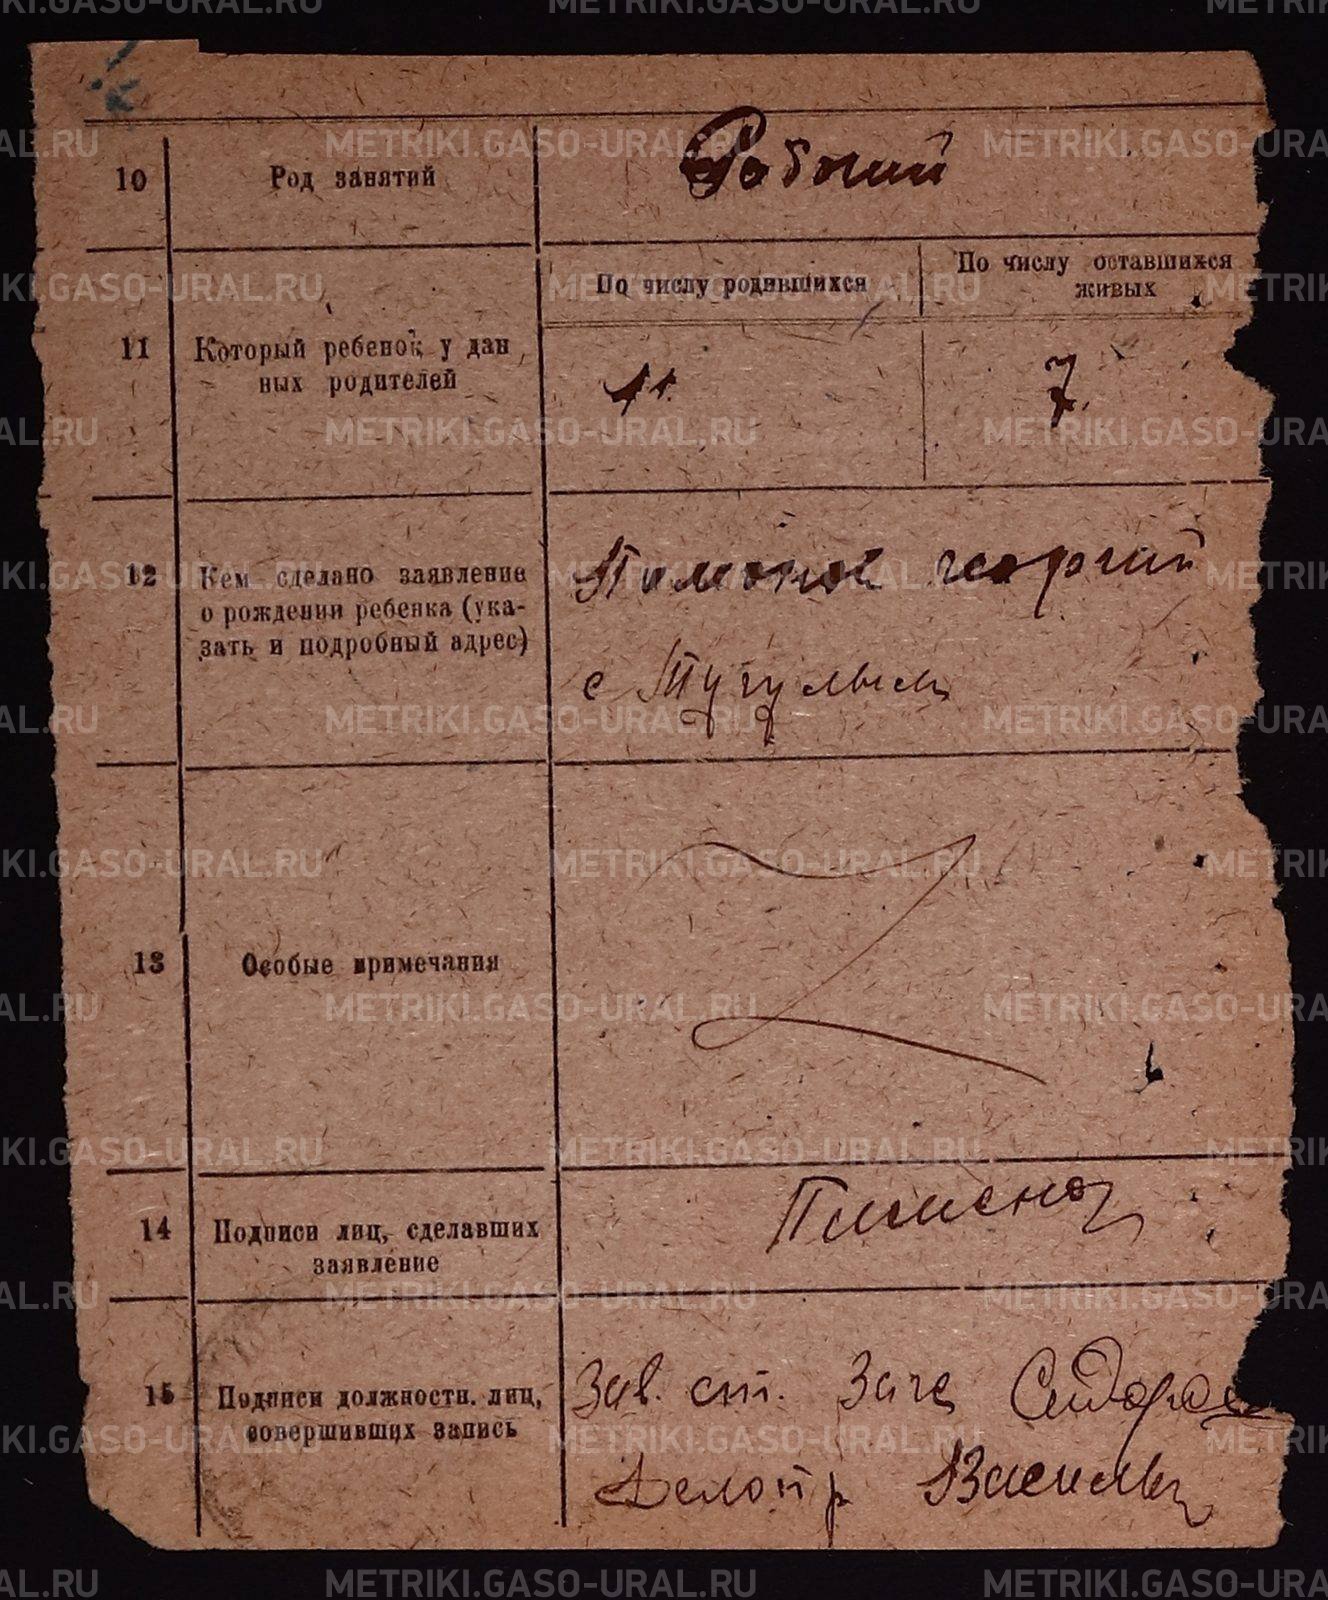 10 Род занятий Рабочий
По числу родившихся
По числу оставшихся
живых
11 Который ребенок у дан
ных родителей
11.
7.
12 Кем сделано заявление
о рождении ребенка (ука-
зать и подробный адрес)
Пимонов георгий
с Тугулым
13 Особые примечания
14 Подписи лиц, сделавших
заявление
Пимено
15 Подписи должностн. лиц,
совершивших запись
Зав. ст. Загс Сидоро
Делопр Василь
METRIKI.GASO-URAL.RU